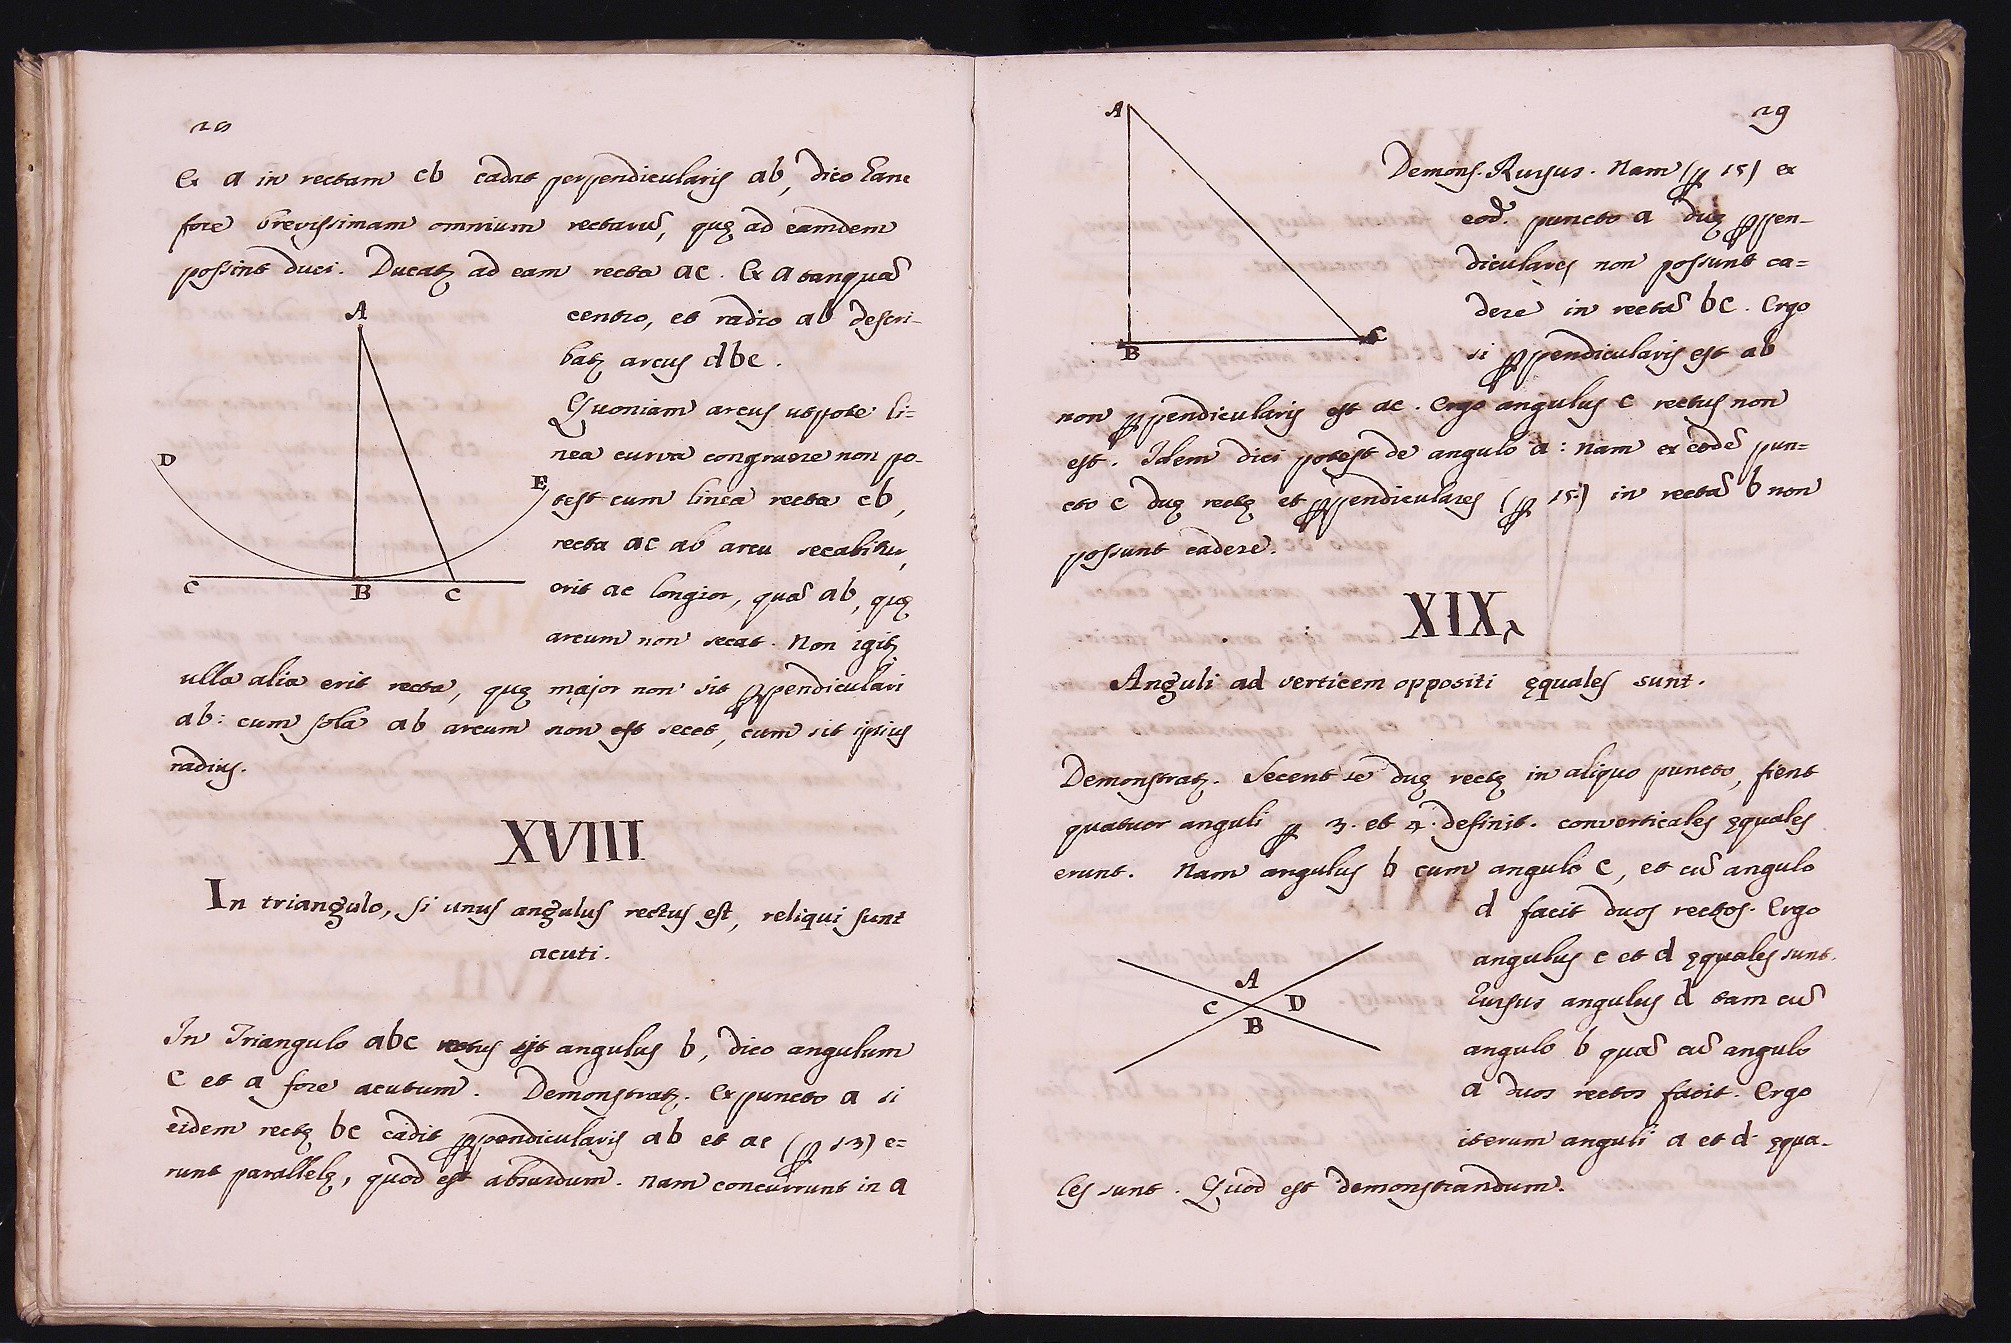 28
Ex a in rectam cb cadat perpendicularis ab, dico hanc
fore brevissimam omnium rectarũ, quę ad eamdem
possint duci. Ducatʒ ad eam recta ac. Ex a tanquã
centro, et radio ab descri-
batʒ arcus dbe.
Quoniam arcus utpote li=
nea curva congruere non po-
test cum linea recta cb,
recta ac ab arcu secabitur,
erit ac longior, quã ab, quę
arcum non secat. Non igitʒ
ulla alia erit recta, quę major non sit ꝑpendiculari
ab: cum sola ab arcum non est secet, cum sit ipsius
radius.
A
D
E
C
B
C
XVIII
In triangulo, si unus angulus rectus est, reliqui sunt
acuti.
In Triangulo abc rectus sit angulus b, dico angulum
c et a fore acutum. Demonstratʒ. Ex puncto a si
eidem rectę bc cadit ꝑpendicularis ab et ac (ꝑ 13) e=
runt parallelę, quod est absurdum. nam concurrunt in a
29
A
B
C
Demonſ. Rursus. Nam (ꝑ 15) ex
eod. puncto a duę ꝑpen-
diculares non possunt ca=
dere in rectã bc. Ergo
si ꝑpendicularis est ab
non ꝑpendicularis est ac. Ergo angulus c rectus non
est. Idem dici potest de angulo a: nam ex eodẽ pun=
cto c duę rectę et ꝑpendiculares (ꝑ 15.) in rectã b non
possunt cadere.
XIX
Anguli ad verticem oppositi ęquales sunt.
Demonstratʒ. Secent se duę rectę in aliquo puncto, fient
quatuor anguli ꝑ 3. et 4. definit. converticales ęquales
erunt. Nam angulus b cum angulo c, et cũ angulo
d facit duos rectos. Ergo
angulus c et d ęquales sunt.
Rursus angulus d tam cũ
angulo b quã cũ angulo
a duos rectos facit. Ergo
iterum anguli a et d ęqua-
les sunt. Quod est demonstrandum.
A
C
D
B